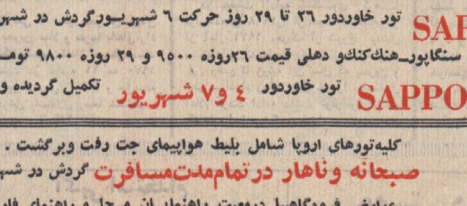 تور خاوردور ۲۶ تا ۲۹ روز حرکت ۶ شهریور گردش در شهر
سنگاپور_هنك‌كنك‌و دهلی قیمت ۲۶روزه ۹۵۰۰ و ۲۹ روزه ۹۸۰۰ تومـ
SAPPO تور خاوردور ٤ و۷ شهریور تکمیل گردیده و
کلیه‌تورهای اروپا شامل بلیط هواپیمای جت رفت وبرگشت .
صبحانه وناهار در تمام‌مدت‌مسافرت گردش در شهـ